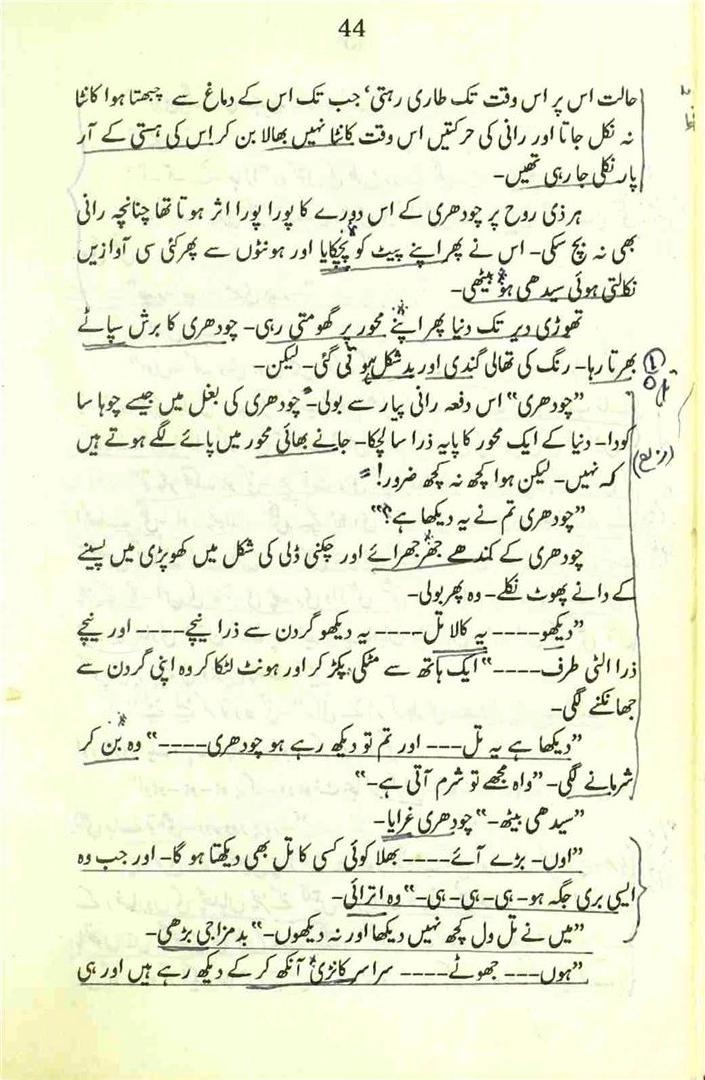 44
حالت اس پر اس وقت تک طاری رہتی، جب تک اس کے دماغ سے چبھتا ہوا کانٹا
نہ نکل جاتا اور رانی کی حرکتیں اس وقت کانٹا نہیں بھالا بن کر اس کی ہستی کے آر
پار نکلی جا رہی تھیں۔
ہر ذی روح پر چودھری کے اس دورے کا پورا پورا اثر ہوتا تھا چنانچہ رانی
بھی نہ بچ سکی۔ اس نے پھر اپنے پیٹ کو پچکایا اور ہونٹوں سے پھر کئی سی آوازیں
نکالتی ہوئی سیدھی ہو بیٹھی۔
تھوڑی دیر تک دنیا پھر اپنے محور پر گھومتی رہی۔ چودھری کا برش سپاٹے
بھرتا رہا۔ رنگ کی تھالی گندی اور بدشکل ہوتی گئی۔ لیکن۔
”چودھری“ اس دفعہ رانی پیار سے بولی۔ چودھری کی بغل میں جیسے چوہا سا
کودا۔ دنیا کے ایک محور کا پایہ ذرا سا لچکا۔ جانے بھائی محور میں پائے لگے ہوتے ہیں
کہ نہیں۔ لیکن ہوا کچھ نہ کچھ ضرور!
”چودھری تم نے یہ دیکھا ہے؟“
چودھری کے کندھے جھرجھرائے اور چکنی ڈلی کی شکل میں کھوپڑی میں پسینے
کے دانے پھوٹ نکلے۔ وہ پھر بولی۔
”دیکھو---- یہ کالا تل---- یہ دیکھو گردن سے ذرا نیچے---- اور نیچے
ذرا الٹی طرف----“ ایک ہاتھ سے مٹکی پکڑ کر اور ہونٹ لٹکا کر وہ اپنی گردن سے
جھانکنے لگی۔
”دیکھا ہے یہ تل--- اور تم تو دیکھ رہے ہو چودھری----“ وہ بن کر
شرمانے لگی۔ ”واہ مجھے تو شرم آتی ہے۔“
”سیدھی بیٹھ۔“ چودھری غرایا۔
”اوں۔ بڑے آئے---- بھلا کوئی کسی کا تل بھی دیکھتا ہو گا۔ اور جب وہ
ایسی بری جگہ ہو۔ ہی۔ ہی۔ ہی۔ ہی۔“ وہ اترائی۔
”میں نے تل ول کچھ نہیں دیکھا اور نہ دیکھوں۔“ بدمزاجی بڑھی۔
”ہوں--- جھوٹے---- سراسر کانڑی آنکھ کر کے دیکھ رہے ہیں اور ہی